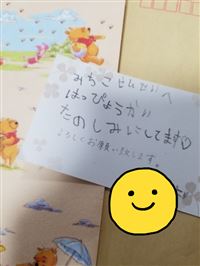 みちこせんせいへ
はっぴょうかい
たのしみにしてます♡
よろしくお願い致します。